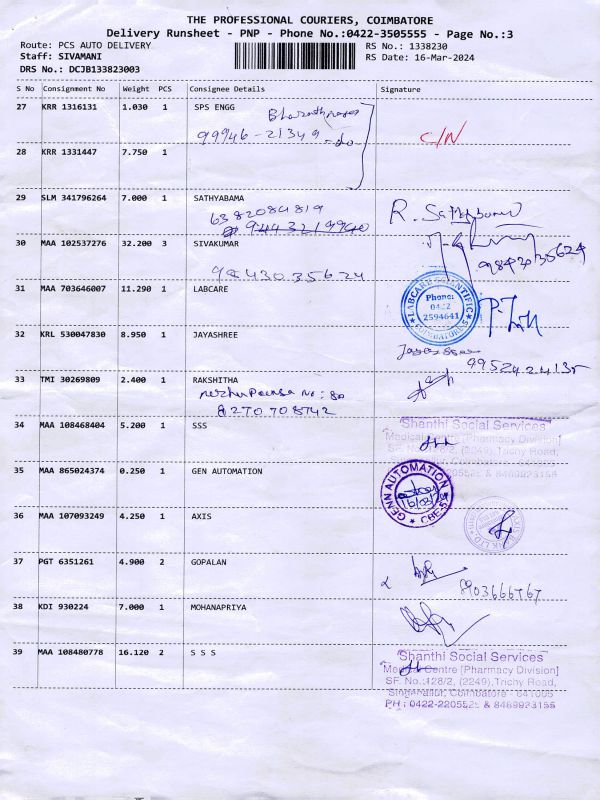 THE PROFESSIONAL COURIERS, COIMBATORE
Delivery Runsheet - PNP - Phone No.:0422-3505555 - Page No.:3
Route: PCS AUTO DELIVERY
Staff: SIVAMANI
DRS No.: DCJB133823003
RS No.: 1338230
RS Date: 16-Mar-2024
S No Consignment No Weight PCS Consignee Details Signature
27 KRR 1316131 1.030 1 SPS ENGG
99946-21349 -do-
C/N
28 KRR 1331447 7.750 1
29 SLM 341796264 7.000 1 SATHYABAMA
6382084819
9443219940
R. Sathyabama
30 MAA 102537276 32.200 3 SIVAKUMAR
9843035624
9843035624
31 MAA 703646007 11.290 1 LABCARE
LABCARE SCIENTIFIC
Phone:
0422
2594641
COIMBATORE
32 KRL 530047830 8.950 1 JAYASHREE
9952424135
33 TMI 30269809 2.400 1 RAKSHITHA
No: 80
8270708742
34 MAA 108468404 5.200 1 SSS
Shanthi Social Services
Medical Centre [Pharmacy Division]
SF. No.:128/2, (2249),Trichy Road,
2205525 & 8489923154
35 MAA 865024374 0.250 1 GEN AUTOMATION
GENN AUTOMATION
16/03/24
CBE-5
36 MAA 107093249 4.250 1 AXIS
37 PGT 6351261 4.900 2 GOPALAN
8903666767
38 KDI 930224 7.000 1 MOHANAPRIYA
39 MAA 108480778 16.120 2 S S S
Shanthi Social Services
Medical Centre [Pharmacy Division]
SF. No.:128/2, (2249),Trichy Road,
Singanallur, Coimbatore - 641005
PH : 0422-2205525 & 8489923155